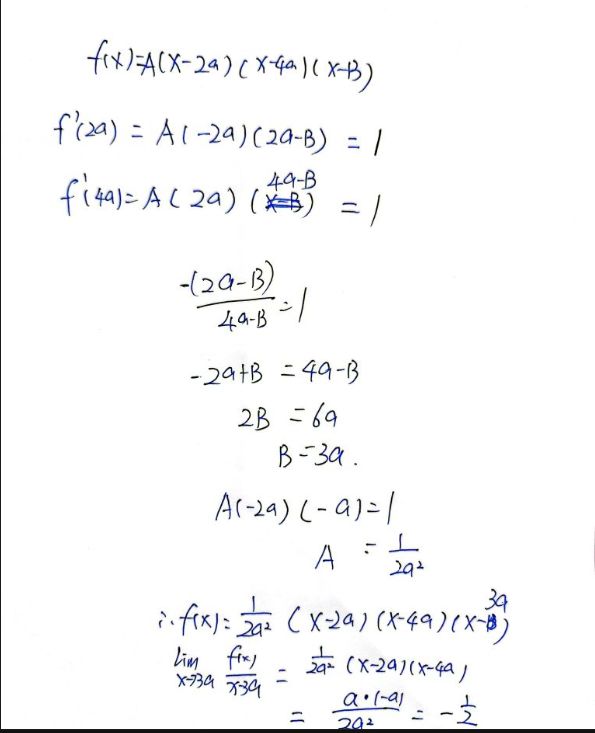 f(x)=A(x-2a)(x-4a)(x-B)
f'(2a) = A(-2a)(2a-B) = 1
f'(4a)=A(2a)(4a-B) = 1
-(2a-B)/4a-B = 1
-2a+B = 4a-B
2B = 6a
B=3a.
A(-2a)(-a)=1
A = 1/2a²
∴ f(x)= 1/2a² (x-2a)(x-4a)(x-3a)
lim x→3a f(x)/x-3a = 1/2a² (x-2a)(x-4a)
= a·(-a)/2a² = -1/2